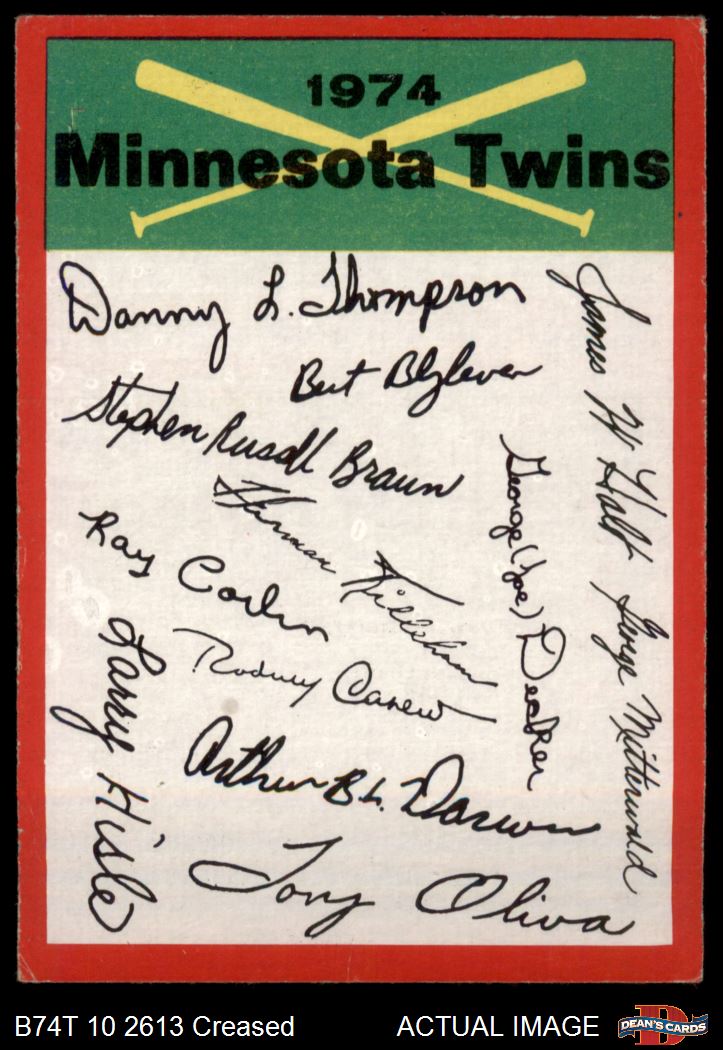 1974
Minnesota Twins
Danny L. Thompson
Bert Blyleven
Stephen Russell Braun
James W Holt
George (Joe) Decker
Herman Killebrew
Ray Corbin
George Mitterwald
Rodney Carew
Larry Hisle
Arthur B L. Darwin
Tony Oliva
B74T 10 2613 Creased
ACTUAL IMAGE
D
DEAN'S CARDS